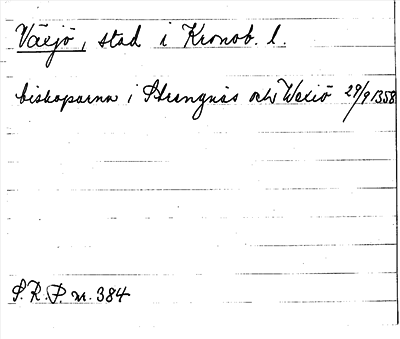 Växjö, stad i Kronob. l.
biskoparna i Strengnäs och Wexiö 29/9 1358
S.R.P. nr. 384